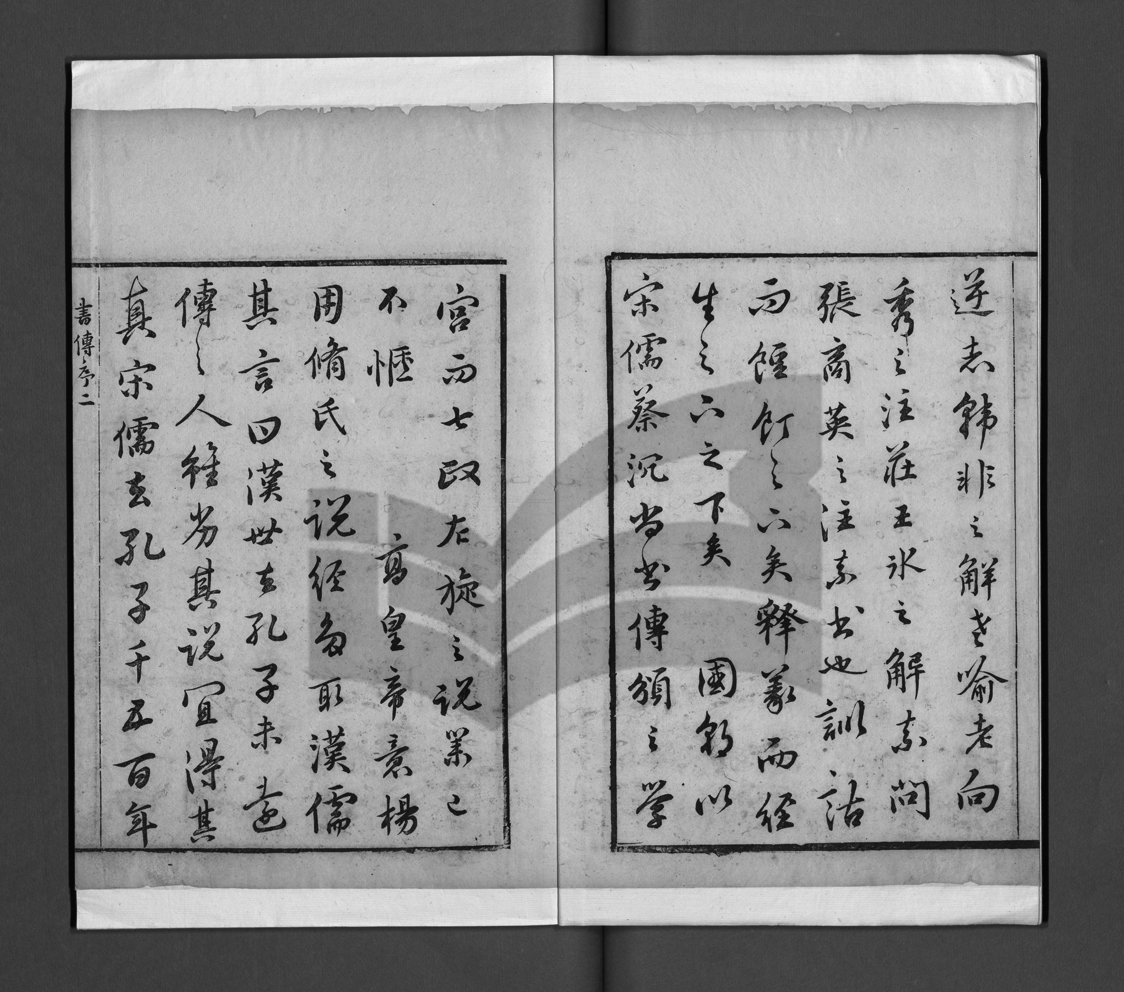 逆志韓非之解老喻老向
秀之注莊王氷之解素問
張商英之注素書也訓詁
而餖飣之下矣釋義而経
生之下之下矣 國朝以
宋儒蔡沉尚書傳頒之學
宮而七政左旋之說業已
不愜 高皇帝意楊
用脩氏之說経多取漢儒
其言曰漢世去孔子未遠
傳之人雖劣其說宜得其
真宋儒去孔子千五百年
書傳序二